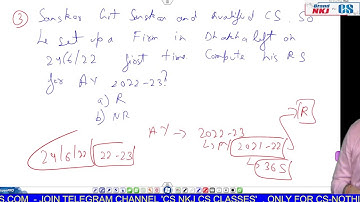 ③ Sanskar Got Sanskar and qualified CS. So
he set up a Firm in Dhakha left on
24/6/22 first time Compute his RS
for AY 2022-23?
a) R
b) NR
AY → 2022-23
↳ PY 2021-22
365
R
24/6/22 22-23
Grand
NKJ CS
CS.COM - JOIN TELEGRAM CHANNEL 'CS NKJ CS CLASSES' . ONLY FOR CS-NOTHI